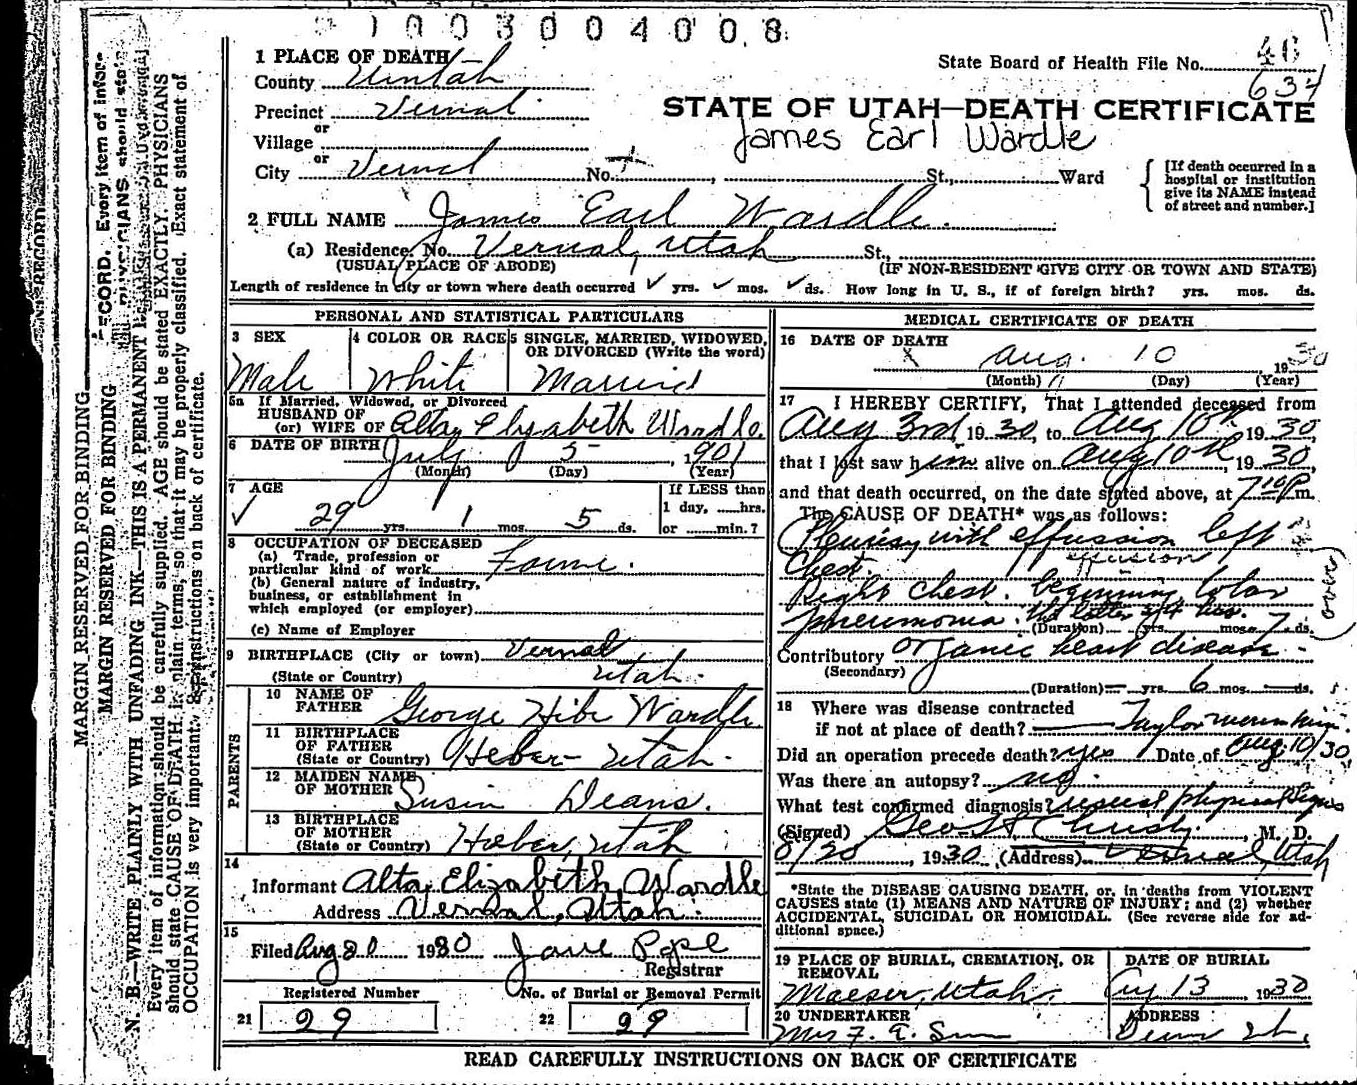 1003004008
1 PLACE OF DEATH
County Uintah
State Board of Health File No. 46
634
Precinct Vernal
STATE OF UTAH—DEATH CERTIFICATE
or
Village
James Earl Wardle
or
City Vernal No. St., Ward
[If death occurred in a hospital or institution give its NAME instead of street and number.]
2 FULL NAME James Earl Wardle.
(a) Residence. No. Vernal, Utah St.,
(USUAL PLACE OF ABODE) (IF NON-RESIDENT GIVE CITY OR TOWN AND STATE)
Length of residence in city or town where death occurred ✓ yrs. ✓ mos. ✓ ds. How long in U. S., if of foreign birth? yrs. mos. ds.
PERSONAL AND STATISTICAL PARTICULARS
3 SEX
Male
4 COLOR OR RACE
White
5 SINGLE, MARRIED, WIDOWED, OR DIVORCED (Write the word)
Married
5a If Married, Widowed, or Divorced
HUSBAND OF
(or) WIFE OF Alta Elizabeth Wardle.
6 DATE OF BIRTH July 5, 1901
(Month) (Day) (Year)
7 AGE
✓ 29 yrs. 1 mos. 5 ds.
If LESS than
1 day, hrs.
or min.?
8 OCCUPATION OF DECEASED
(a) Trade, profession or
particular kind of work
(b) General nature of industry,
business, or establishment in
which employed (or employer)
(c) Name of Employer
9 BIRTHPLACE (City or town) Vernal
(State or Country) Utah.
PARENTS
10 NAME OF
FATHER George Wardle
11 BIRTHPLACE
OF FATHER
(State or Country) Heber Utah.
12 MAIDEN NAME
OF MOTHER Deans.
13 BIRTHPLACE
OF MOTHER
(State or Country) Heber, Utah
14
Informant Alta Elizabeth Wardle
Address Vernal, Utah.
15
Filed Aug 20 1930 Jane Pope
Registrar
Registered Number No. of Burial or Removal Permit
21 29 22 29
MEDICAL CERTIFICATE OF DEATH
16 DATE OF DEATH
Aug. 10 1930
(Month) (Day) (Year)
17 I HEREBY CERTIFY, That I attended deceased from
Aug 3rd 1930, to Aug 10th 1930,
that I last saw him alive on Aug 10th, 1930,
and that death occurred, on the date stated above, at 7 10 P m.
The CAUSE OF DEATH* was as follows:
Pleurisy with effussion left
Chest. effusion
Right Chest. beginning lobar
pneumonia. the latter 24 hrs.
(Duration) yrs. mos. 7 ds.
(over)
Contributory organic heart disease.
(Secondary)
(Duration) yrs. 6 mos. ds.
18 Where was disease contracted
if not at place of death? Taylor
Did an operation precede death? yes Date of Aug. 10/30
Was there an autopsy? no.
What test confirmed diagnosis? usual physical signs
(Signed) Geo. H. Christy, M. D.
8/20, 1930 (Address) Vernal, Utah
*State the DISEASE CAUSING DEATH, or, in deaths from VIOLENT CAUSES state (1) MEANS AND NATURE OF INJURY; and (2) whether ACCIDENTAL, SUICIDAL OR HOMICIDAL. (See reverse side for additional space.)
19 PLACE OF BURIAL, CREMATION, OR REMOVAL
Maeser, Utah.
DATE OF BURIAL
Aug 13 1930
20 UNDERTAKER
Mrs F. E.
ADDRESS
READ CAREFULLY INSTRUCTIONS ON BACK OF CERTIFICATE
MARGIN RESERVED FOR BINDING
MARGIN RESERVED FOR BINDING
N. B.—WRITE PLAINLY WITH UNFADING INK—THIS IS A PERMANENT RECORD. Every item of infor-
Every item of information should be carefully supplied. AGE should be stated EXACTLY. PHYSICIANS
should state CAUSE OF DEATH in plain terms, so that it may be properly classified. Exact statement of
OCCUPATION is very important. See instructions on back of certificate.